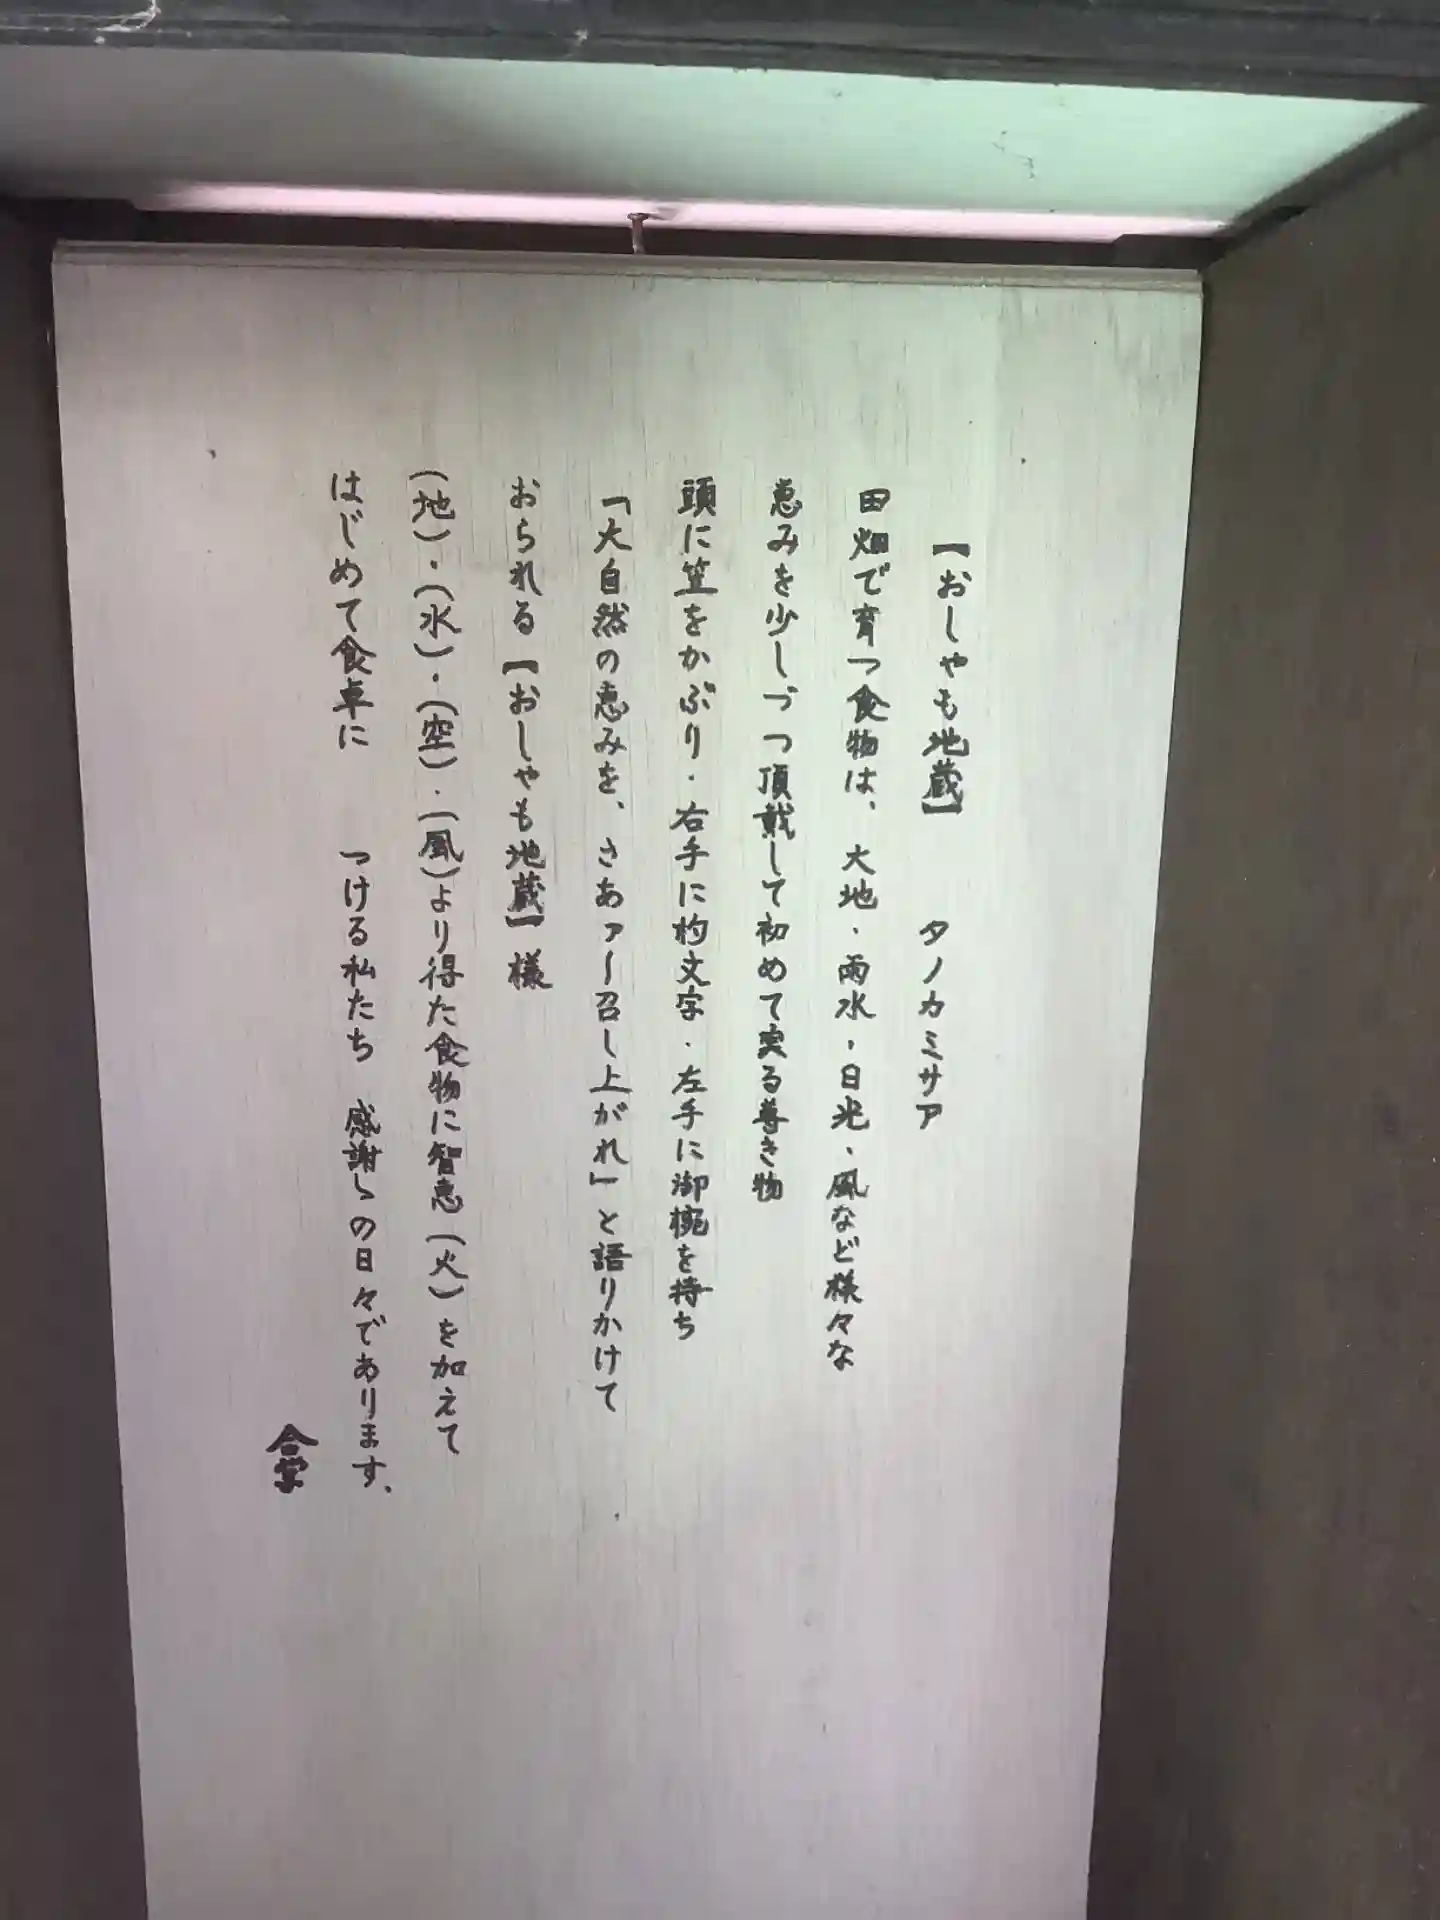 【おしゃも地蔵】　タノカミサア
田畑で育つ食物は、大地・雨水・日光・風など様々な
恵みを少しづつ頂戴して初めて実る尊き物
頭に笠をかぶり・右手に杓文字・左手に御椀を持ち
「大自然の恵みを、さあァ〜召し上がれ」と語りかけて
おられる【おしゃも地蔵】様
(地)・(水)・(空)・(風)より得た食物に智恵(火)を加えて
はじめて食卓に　つける私たち　感謝〻の日々であります、
合掌